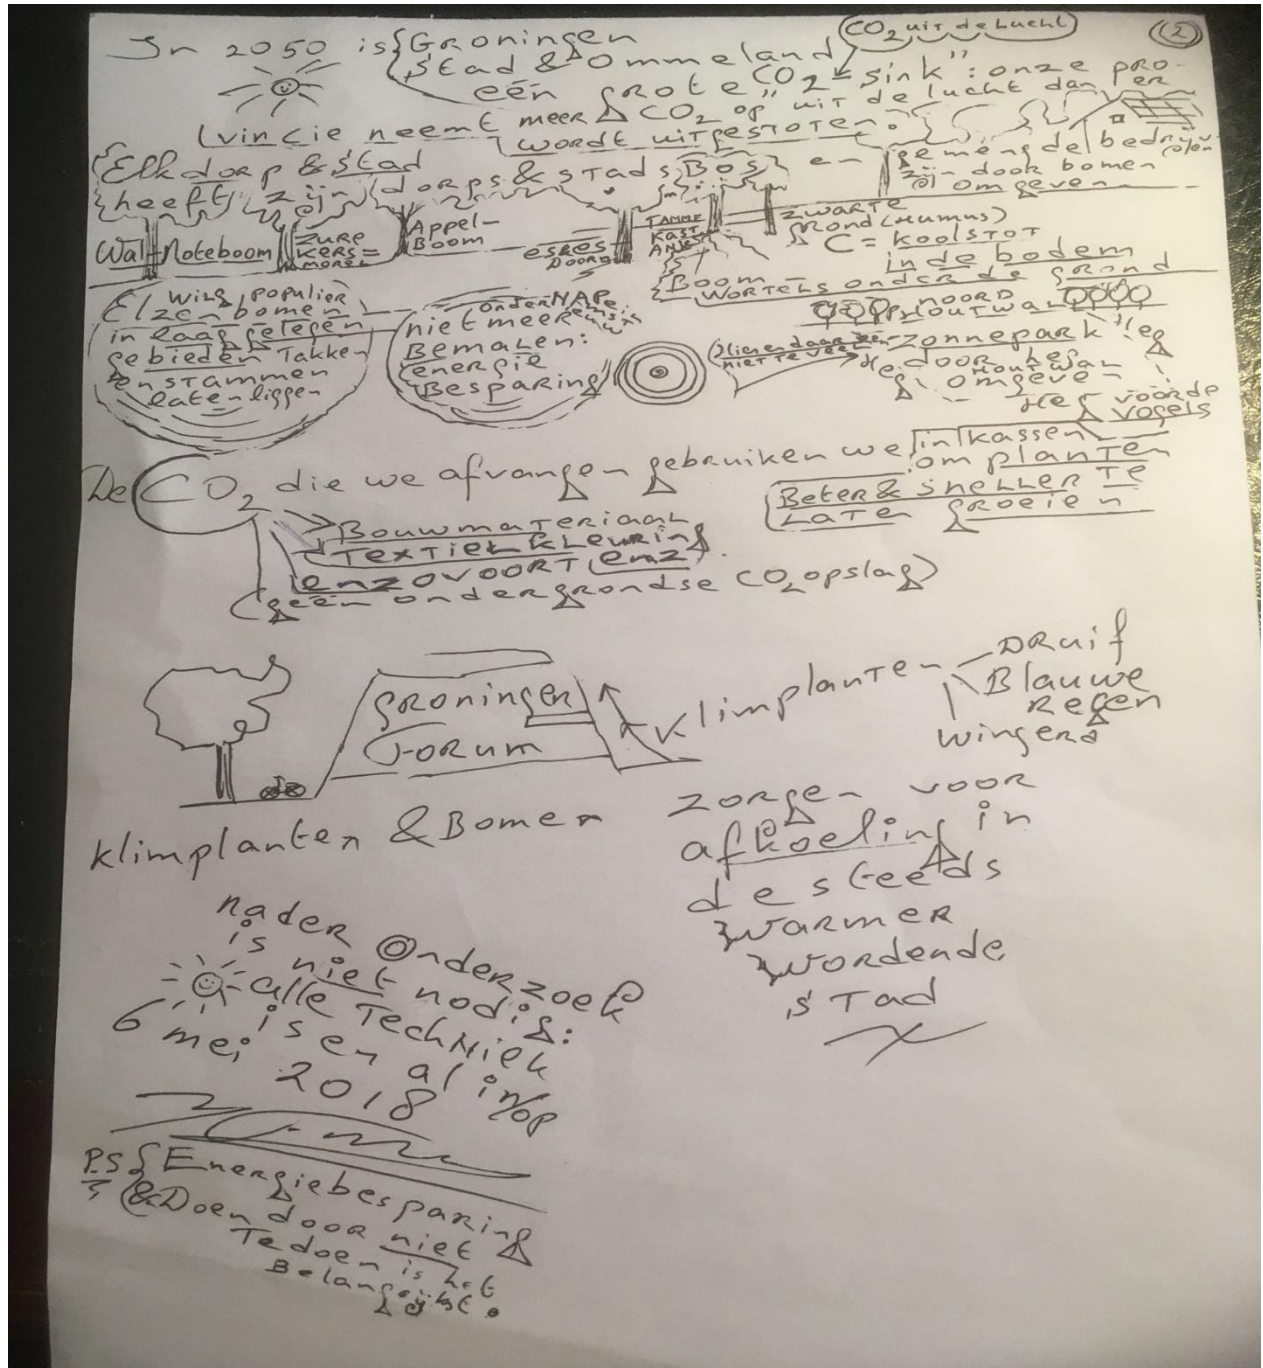 CO2 uit de lucht
2
In 2050 is Groningen
Stad & Ommeland
één grote CO2 "sink": onze pro-
vincie neemt meer CO2 op uit de lucht dan er
wordt uitgestoten.
Elk dorp & stad
heeft zijn dorps & stads Bos en
gemengde bedrijven
zijn door bomen
omgeven
Wal-Noteboom
Zure
kers =
morel
Appel-
Boom
esdes
Doorn
Tamme
Kast
Anje
zwarte
grond (Humus)
C = koolstof
in de bodem
Boom-
wortels onder de grond
Wilg, populier
Elzenbomen
in laag gelegen
gebieden Takken
en stammen
laten liggen
onder NAP
niet meer
Bemalen:
energie
Besparing
noord
Houtwal
Hier en daar een
niet te veel
zonnepark
door heg
Houtwal
omgeven
Heg
Heg
Heg voor de
vogels
De CO2 die we afvangen gebruiken we in kassen
om planten
Beter & sneller te
laten groeien
Bouwmateriaal
Textielkleuring
enzovoort enz
(geen ondergrondse CO2 opslag)
Groninger
Forum
klimplanten
Druif
Blauwe
Regen
wingerd
klimplanten & Bomen
zorgen voor
afkoeling in
de steeds
warmer
wordende
stad
nader Onderzoek
is niet nodig:
alle Techniek
is er al in/op
6 mei 2018
P.S. Energiebesparing
& Doen door niet
Te doen is het
Belangrijkst.